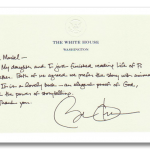 THE WHITE HOUSE
WASHINGTON
My daughter and I just finished reading Life of Pi
Both of us agreed we prefer the story with
It is a lovely book - an elegant proof of God,
the power of storytelling.
Thank you.